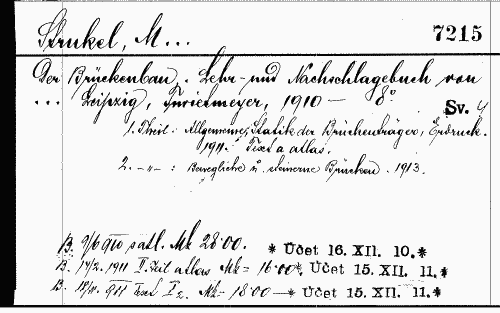 Strukel, M...
7215
Der Brückenbau. Lehr- und Nachschlagebuch von
... Leipzig, Twietmeyer, 1910 — 8°
Sv. 4
1. Theil: Allgemeines, Statik der Brückenträger, Erddruck.
1911. Text a atlas.
2. -„- : Bewegliche u. steinerne Brücken. 1913.
B. 9/6 910 s atl. Mk 28·00. * Účet 16. XII. 10.*
B. 14/2. 1911 II. Teil atlas Mk= 16·00*, Účet 15. XII. 11.*
B. 911 Text I 2. Mk= 18·00 —* Účet 15. XII. 11.*